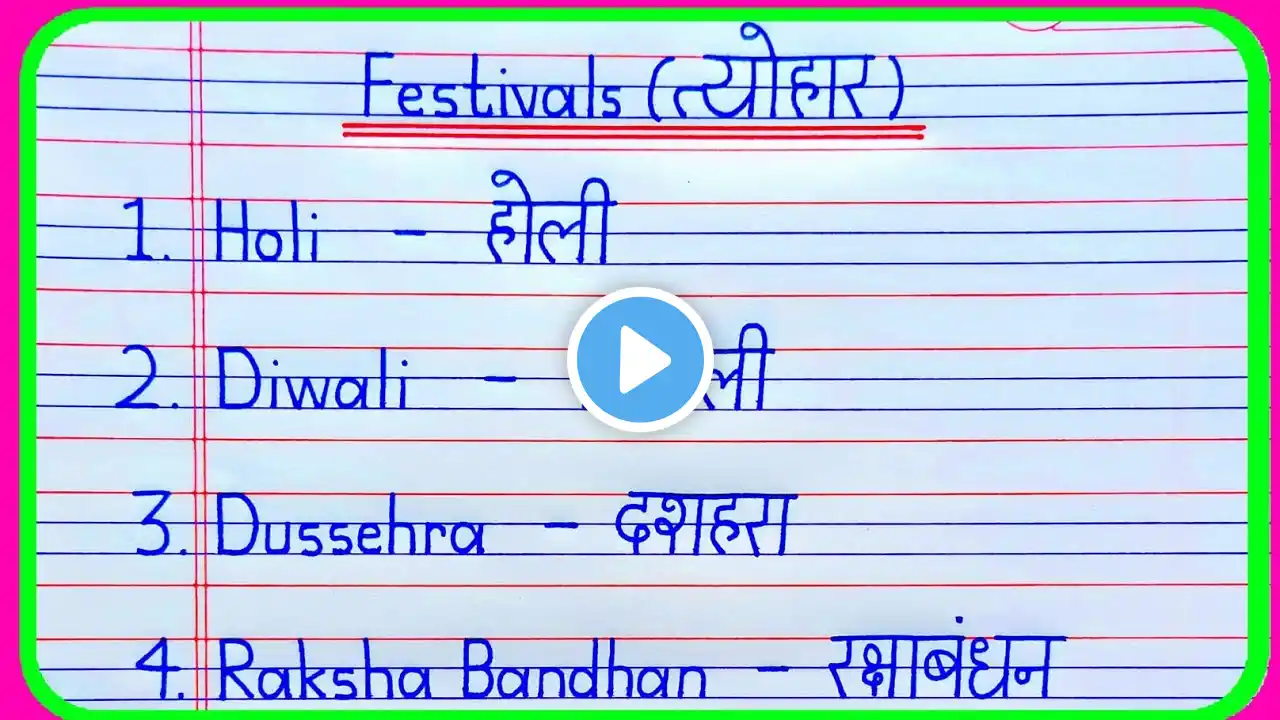 Festivals (त्योहार)
1. Holi - होली
2. Diwali - ली
3. Dussehra - दशहरा
4. Raksha Bandhan - रक्षाबंधन